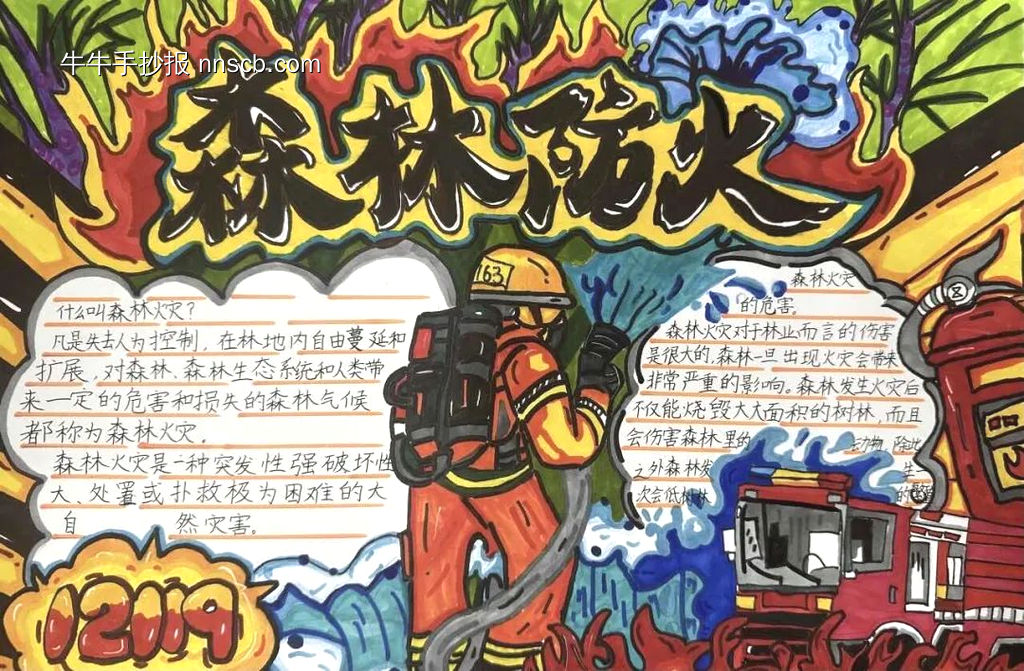 牛牛手抄报 nnscb.com
森林防火
163
什么叫森林火灾？
凡是失去人为控制，在林地内自由蔓延和
扩展，对森林、森林生态系统和人类带
来一定的危害和损失的森林气候
都称为森林火灾。
森林火灾是一种突发性强破坏性
大、处置或扑救极为困难的大
自 然灾害。
12119
森林火灾
的危害。
森林火灾对于林业而言的伤害
是很大的，森林一旦出现火灾会带来
非常严重的影响。森林发生火灾后
不仅能烧毁大大面积的树林，而且
会伤害森林里的 动物，除此
之外森林发 生一
次会低树林 的